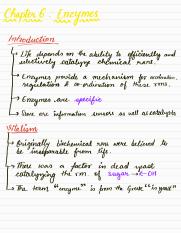 Chapter 6 : Enzymes
Introduction
→ Life depends on the ability to efficiently and
selectively catalyze chemical rxns.
→ Enzymes provide a mechanism for acceleration,
regulation & co-ordination of these rxns.
→ Enzymes are specific
→ Some are information sensors as well as catalysts
Vitalism
→ Originally biochemical rxns were believed to
be inseparable from life.
→ There was a factor in dead yeast
catalyzing the rxn of sugar → OH
→ The term "enzyme" is from the Greek "in yeast"